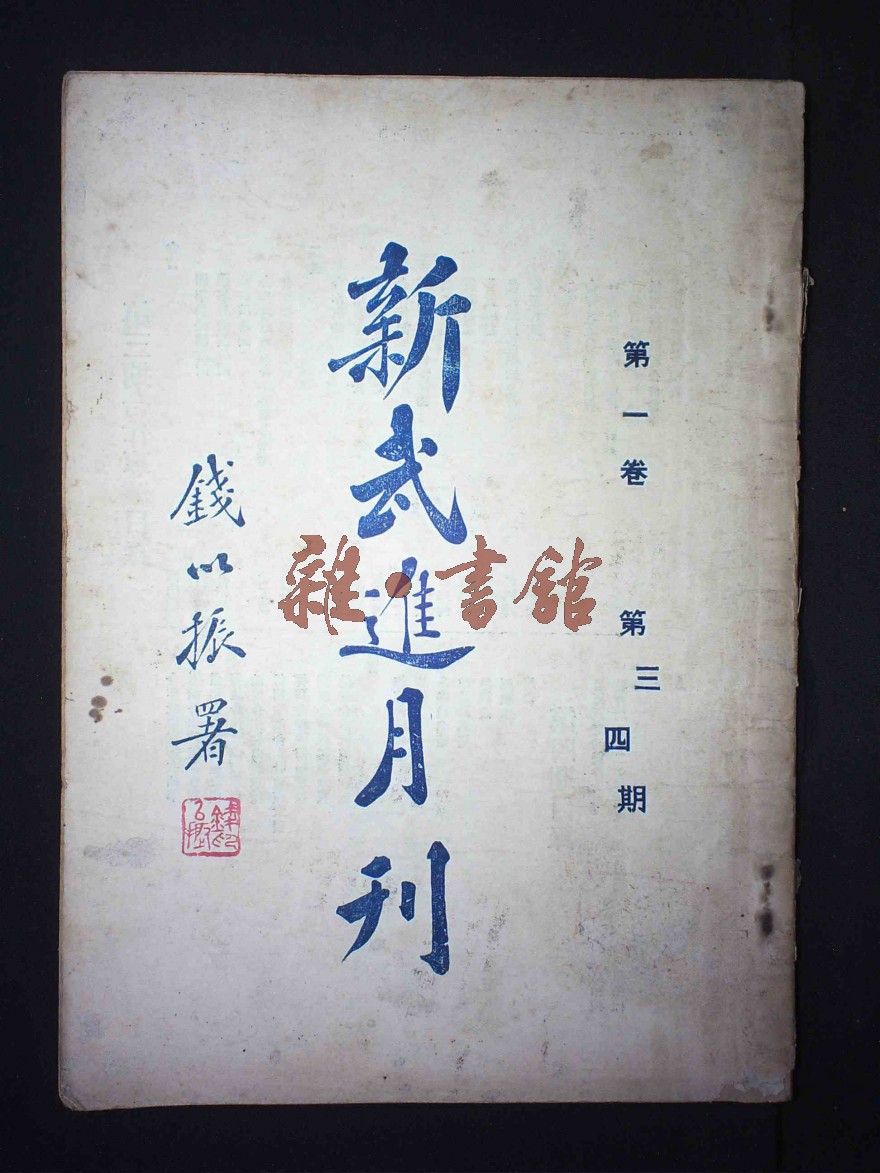 第一卷 第三四期
新武進月刊
錢以振署
雜·書館